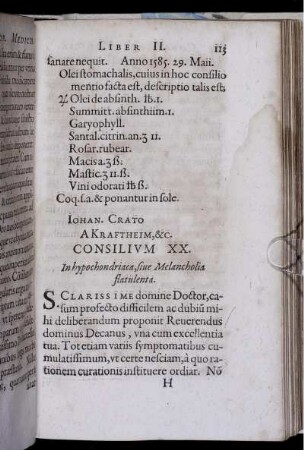 LIBER II. 113
sanare nequit. Anno 1585. 29. Maii.
Olei stomachalis, cuius in hoc consilio
mentio facta est, descriptio talis est:
♃ Olei de absinth. ℔.1.
Summitt. absinthii m.1.
Garyophyll.
Santal.citrin.an.ʒ 11.
Rosar.rubear.
Macis a.ʒ ß.
Mastic.ʒ 11.ß.
Vini odorati ℔ ß.
Coq.s.a.& ponantur in sole.
IOHAN. CRATO
A KRAFTHEIM, &c.
CONSILIVM XX.
In hypochondriaca, siue Melancholia
flatulenta.
S CLARISSIME domine Doctor, ca-
sum profecto difficilem ac dubiũ mi-
hi deliberandum proponit Reuerendus
dominus Decanus, vna cum excellentia
tua. Tot etiam variis symptomatibus cu-
mulatissimum, vt certe nesciam, à quo ra-
tionem curationis instituere ordiar. Nõ
H